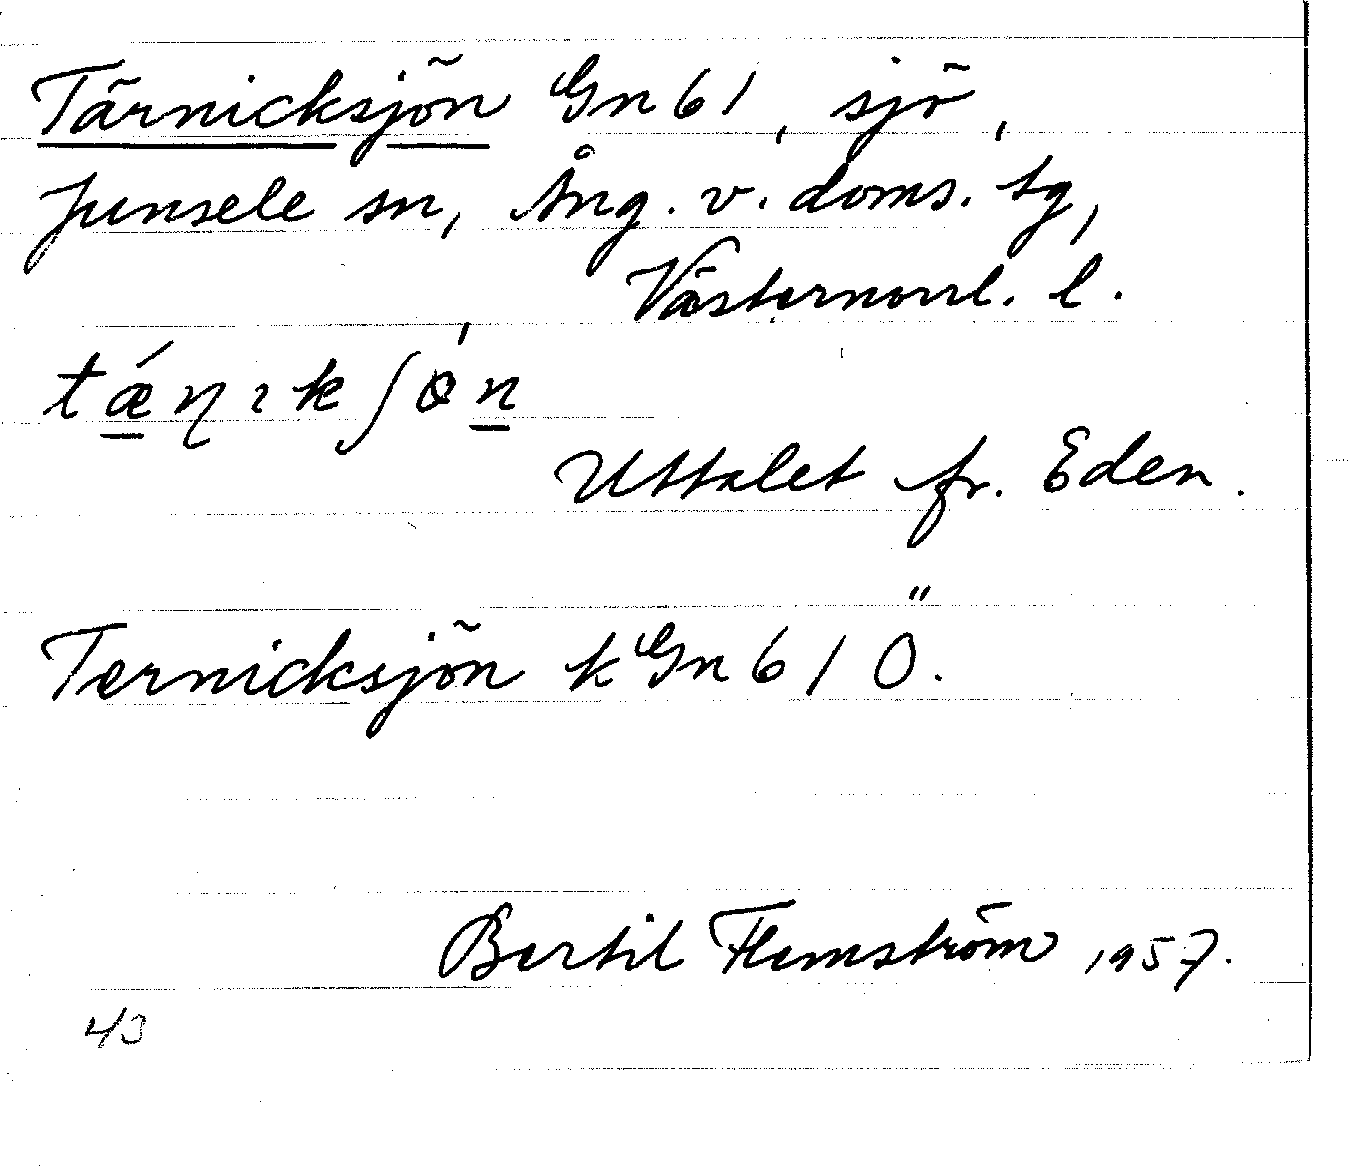 Tärnicksjön Gn 61, sjö,
Junsele sn, Ång. v. doms. tg,
Västernorrl. l.
tǽɳıkʃɵ̀n
Uttalet fr. Eden.
Ternicksjön k Gn 61 Ö.
Bertil Flemström 1957.
43